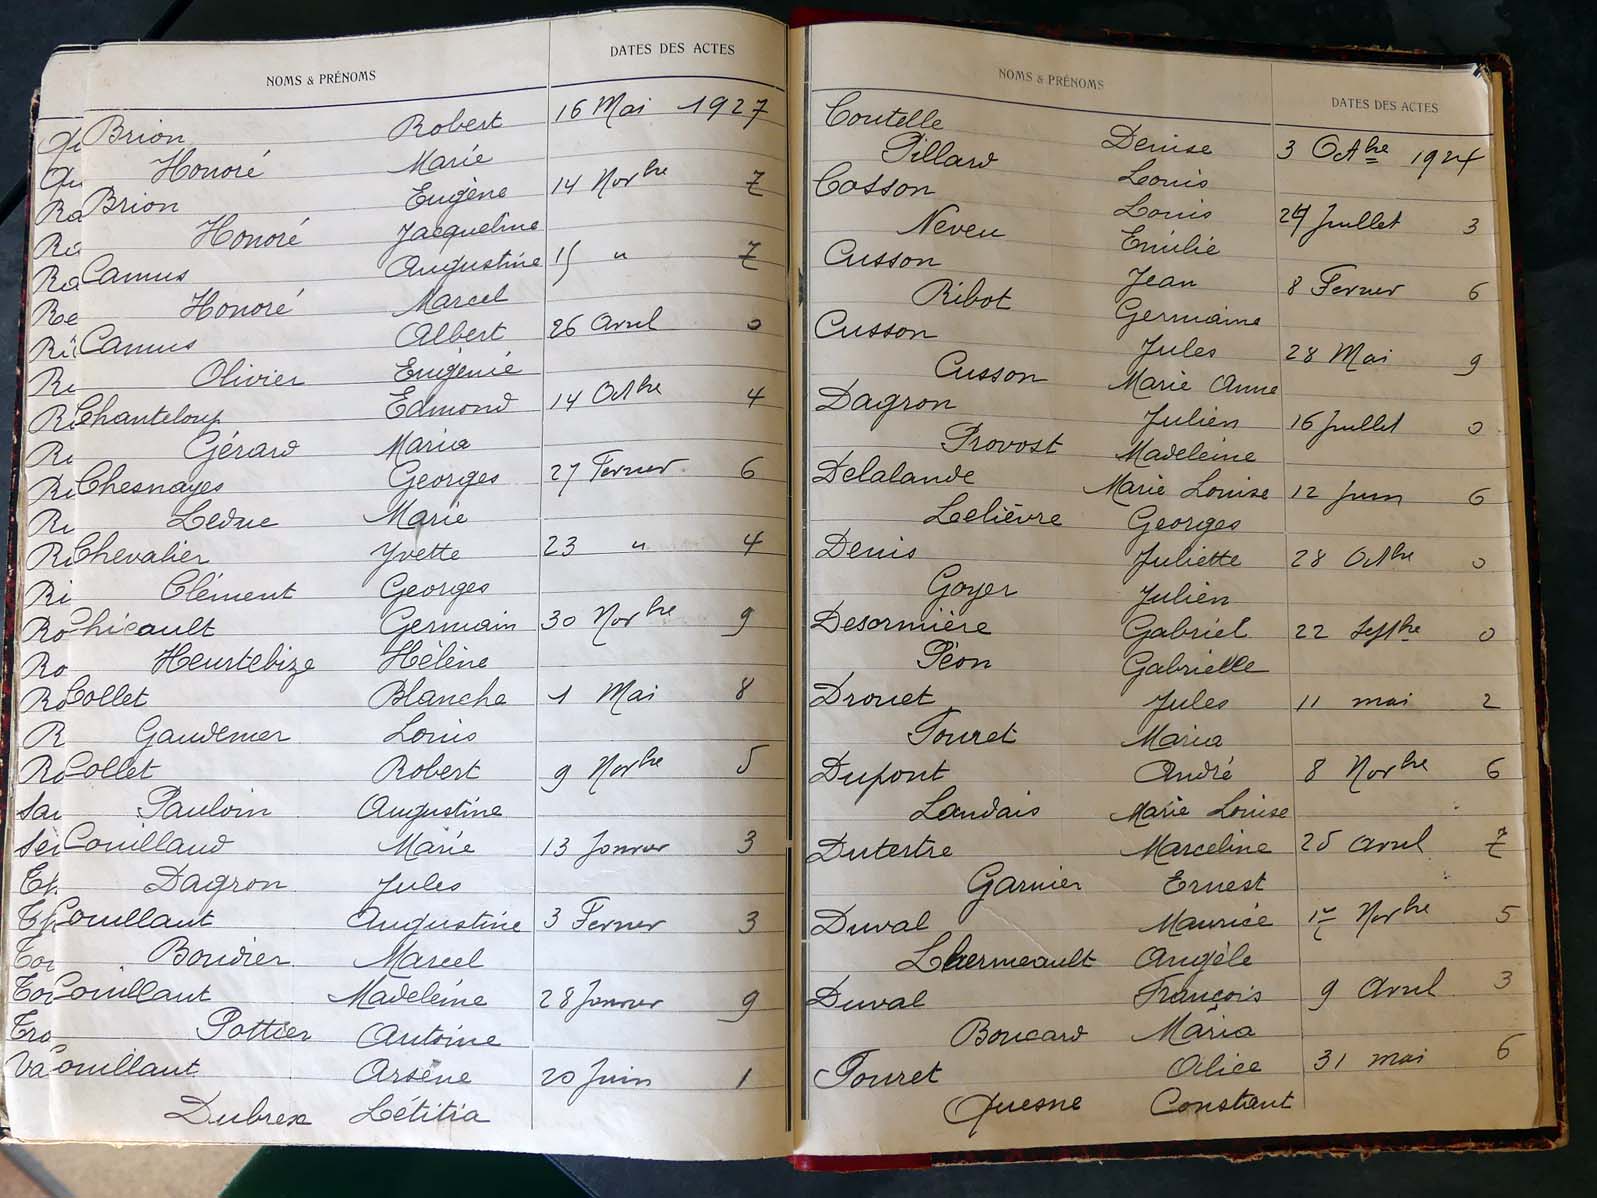 NOMS & PRÉNOMS DATES DES ACTES
Brion Robert 16 Mai 1927
Honoré Marie
Brion Eugène 14 Novbre 7
Honoré Jacqueline
Camus Augustine 15 " 7
Honoré Marcel
Camus Albert 26 Avril 0
Olivier Eugénie
Chanteloup Edmond 14 Octbre 4
Gérard Maria
Chesnayes Georges 27 Fevrier 6
Leduc Marie
Chevalier Yvette 23 " 4
Clément Georges
Chicault Germain 30 Novbre 9
Heurtebize Hélène
Collet Blanche 1 Mai 8
Gaudemer Louis
Collet Robert 9 Novbre 5
Pauloin Augustine
Couillaud Marie 13 Janvier 3
Dagron Jules
Couillaut Augustine 3 Fevrier 3
Boudier Marcel
Couillaut Madeleine 28 Janvier 9
Pottier Antoine
Couillaut Arsène 20 Juin 1
Dubrex Létitia
NOMS & PRÉNOMS DATES DES ACTES
Coutelle Denise 3 Octbre 1924
Pillard Louis
Cosson Louis 24 Juillet 3
Neveu Emilie
Cusson Jean 8 Fevrier 6
Ribot Germaine
Cusson Jules 28 Mai 9
Cusson Marie Anne
Dagron Julien 16 Juillet 0
Provost Madeleine
Delalande Marie Louise 12 Juin 6
Lelièvre Georges
Denis Juliette 28 Octbre 0
Goyer Julien
Desormière Gabriel 22 Septbre 0
Péon Gabrielle
Drouet Jules 11 mai 2
Touret Maria
Dupont André 8 Novbre 6
Landais Marie Louise
Dutertre Marceline 25 avril 7
Garnier Ernest
Duval Maurice 1er Novbre 5
Lhermeault Angèle
Duval François 9 Avril 3
Boucard Maria
Touret Alice 31 mai 6
Quesne Constant